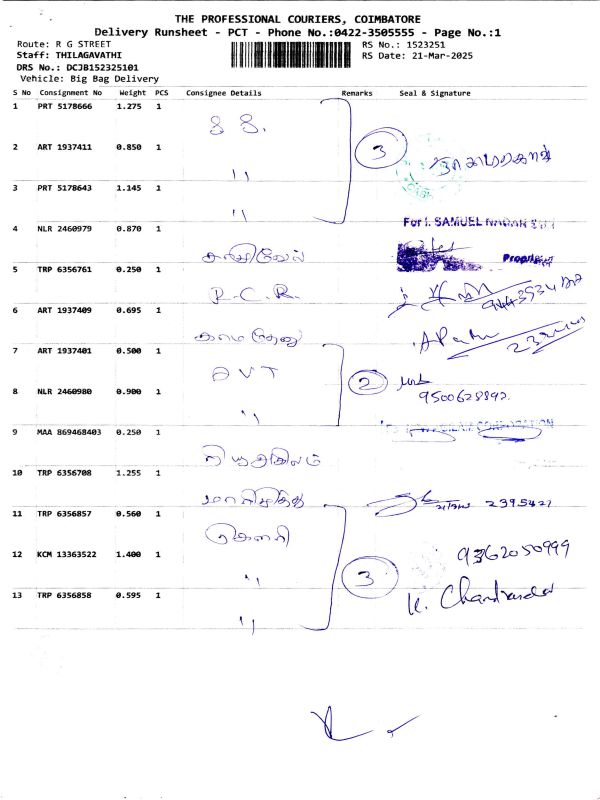 THE PROFESSIONAL COURIERS, COIMBATORE
Delivery Runsheet - PCT - Phone No.:0422-3505555 - Page No.:1
Route: R G STREET RS No.: 1523251
Staff: THILAGAVATHI RS Date: 21-Mar-2025
DRS No.: DCJB152325101
Vehicle: Big Bag Delivery
S No Consignment No Weight PCS Consignee Details Remarks Seal & Signature
1 PRT 5178666 1.275 1
2 ART 1937411 0.850 1 3
" 
3 PRT 5178643 1.145 1
"
For I. SAMUEL NADAR
4 NLR 2460979 0.870 1
5 TRP 6356761 0.250 1
R.C.R.
6 ART 1937409 0.695 1
காமதேனு
7 ART 1937401 0.500 1
8 NLR 2460980 0.900 1 2
" 9500628892
9 MAA 869468403 0.250 1 CORPORATION
10 TRP 6356708 1.255 1
2395427
11 TRP 6356857 0.560 1
கௌரி
12 KCM 13363522 1.400 1 9362050999
" 3
13 TRP 6356858 0.595 1
"